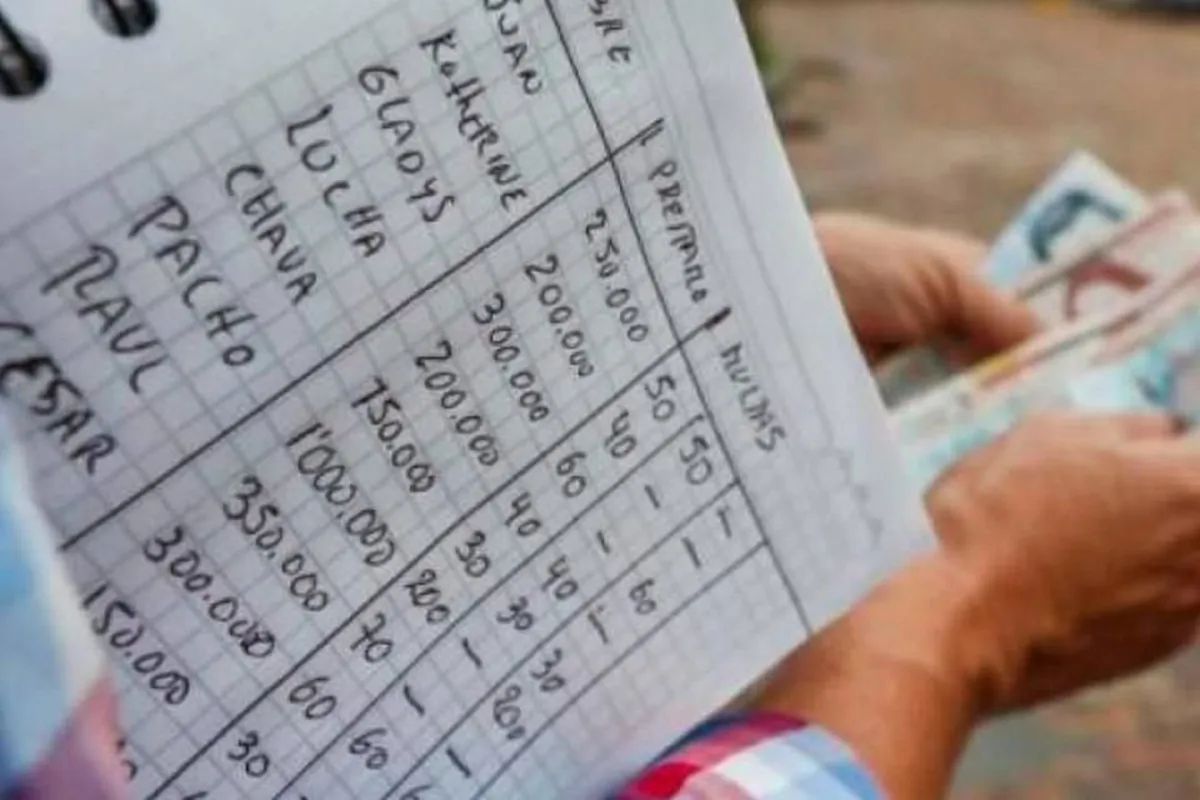 BRE | PRESTAMO | MULTAS
JUAN 250.000 50 50 -
KatHERINE 200.000 40 - -
GLADYS 300.000 60 - 60
LUCHA 200.000 40 40 -
CHAVA 150.000 30 30 30
PACHO 1'000.000 200 - 200
RAUL 350.000 70 - -
CESAR 300.000 60 60
150.000 30